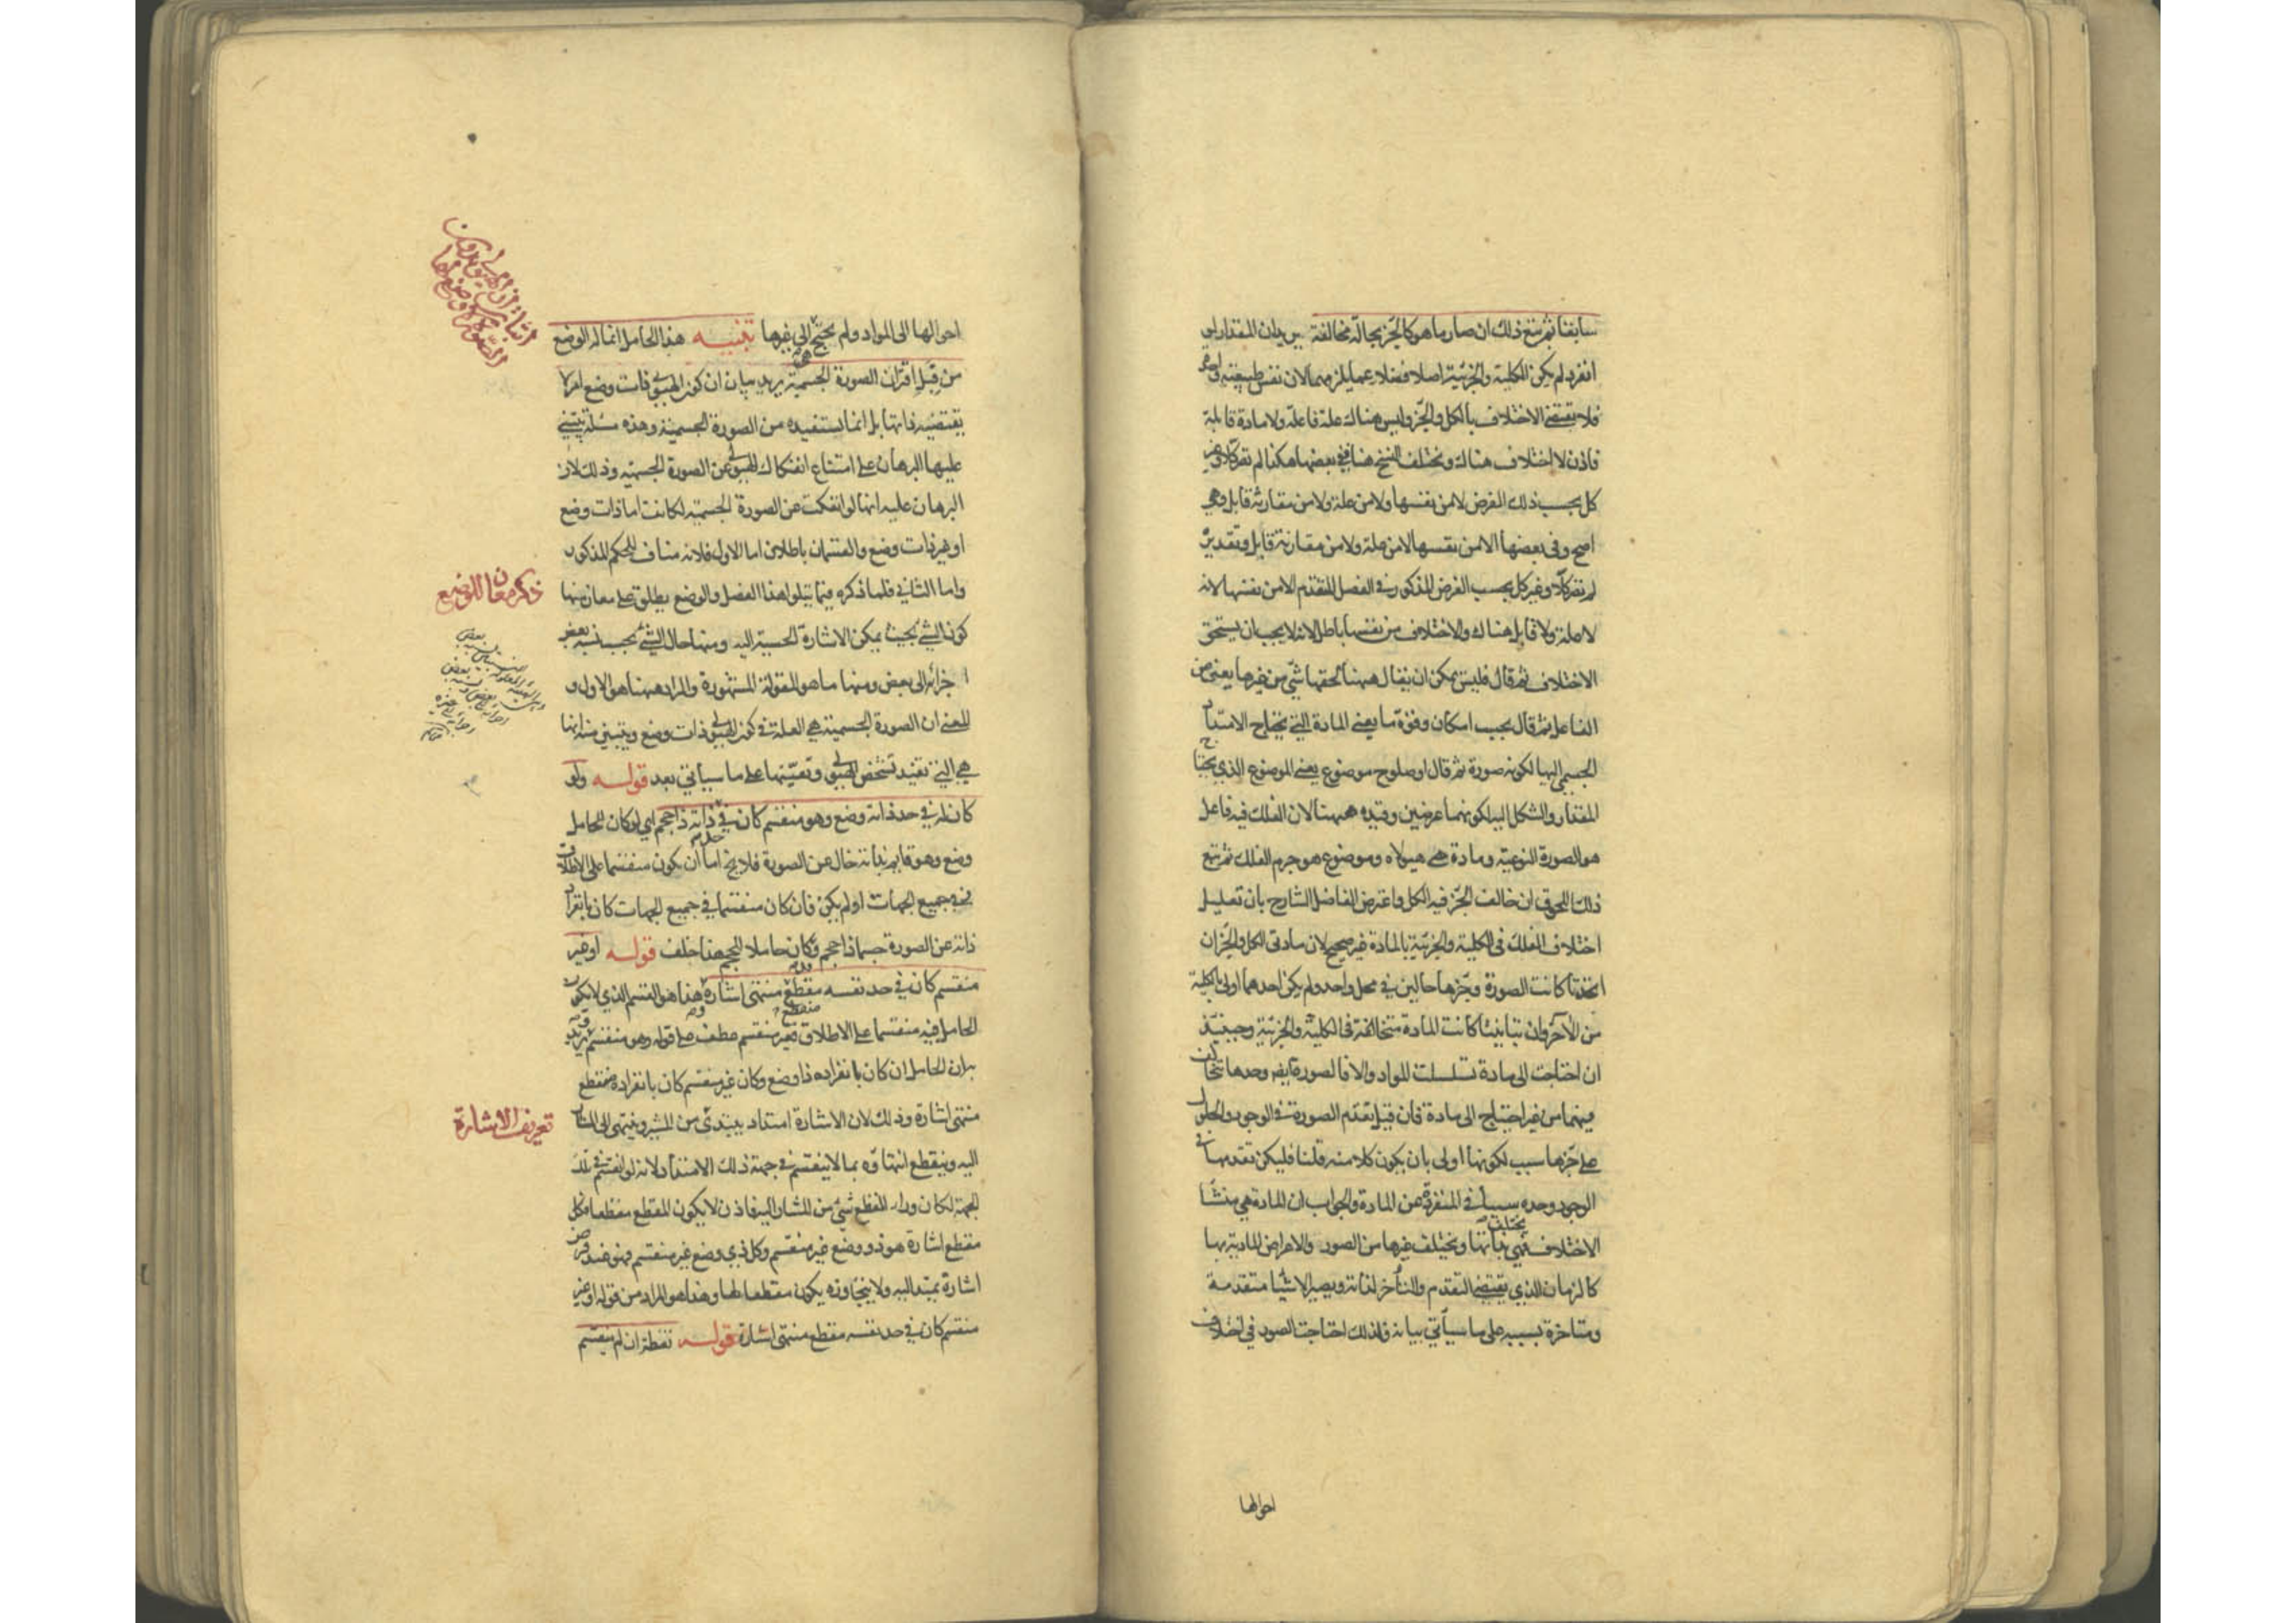 سابقا ثم يتبع ذلك ان صار ما هو كالجزء بحالة مخالفة يريد ان المقدار لو
انفرد لم يكن الكلية والجزئية اصلا فضلا عما يلزمهما لان نفس طبيعته واحدة
فلا يقتضي الاختلاف بالكل والجزء وليس هناك علة فاعلة ولا مادة قابلة
فاذن لا اختلاف هناك وتختلف النسخ هنا ففي بعضها هكذا لم تفد كلا وغير
كل بحسب ذلك الفرض لا من نفسها ولا من علة ولا من مقارنة قابل وهي
اصح وفي بعضها الا من نفسها لا من علة ولا من مقارنة قابل وتقديره
لم تفد كلا وغير كل بحسب الفرض المذكور في الفصل المتقدم الا من نفسها لانه
لا علة ولا قابل هناك والاختلاف من نفسها باطل لانه لا يجب ان يستحق
الاختلاف ثم قال فليس يمكن ان يقال ههنا لحقها شيء من غيرها يعني من
الفاعل ثم قال بحسب امكان وقوة ما يعني المادة التي يحتاج الامتداد
الجسمي اليها لكونه صورة ثم قال او صلوح موضوع يعني الموضوع الذي يحتاج
المقدار والشكل اليه لكونهما عرضين وقيده ههنا لان الفلك فيه فاعل
هو الصورة النوعية ومادة هي هيولاه وموضوع هو جرم الفلك ثم تبع
ذلك اللحوق ان خالف الجزء فيه الكل واعترض الفاضل الشارح بان تعليل
اختلاف الفلك في الكلية والجزئية بالمادة غير صحيح لان مادتي الكل والجزء ان
اتحدتا كانت الصورة وجزءها حالين في محل واحد ولم يكن احدهما اولى بالكلية
من الآخر وان تباينتا كانت المادة متخالفة في الكلية والجزئية وحينئذ
ان احتاجت الى مادة تسلسلت المواد والا فالصورة ايضا وحدها تتخالف
فيهما من غير احتياج الى مادة فان قيل تقدم الصورة في الوجود والحلول
على جزءها سبب لكونها اولى بان يكون كلا منه قلنا فليكن تقدمها في
الوجود وحده سببا في المنفردة عن المادة والجواب ان المادة هي منشأ
الاختلاف فهي تختلف بذاتها ويختلف غيرها من الصور والاعراض المادية بها
كالزمان الذي يقتضي التقدم والتأخر لذاته ويصير الاشيا متقدمة
ومتاخرة بسببه على ما سيأتي بيانه فلذلك احتاجت الصور في اختلاف
احوالها
احوالها الى المواد ولم يحتج الى غيرها تنبيه هذا الحامل انما له الوضع
من قبل اقتران الصورة الجسمية يريد بيان ان كون الهيولى ذات وضع امر لا
يقتضيه ذاتها بل انما تستفيده من الصورة الجسمية وهذه مسئلة يبتني
عليها البرهان على امتناع انفكاك الهيولى عن الصورة الجسمية وذلك لان
البرهان عليه انها لو انفكت عن الصورة الجسمية لكانت اما ذات وضع
او غير ذات وضع والقسمان باطلان اما الاول فلانه مناف للحكم المذكور
واما الثاني فلما ذكره فيما يتلو هذا الفصل والوضع يطلق على معان منها
كون الشئ بحيث يمكن الاشارة الحسية اليه ومنها حال الشئ بحسب نسبة بعض
اجزائه الى بعض ومنها ما هو المقولة المشهورة والمراد ههنا هو الاول و
المعنى ان الصورة الجسمية هي العلة في كون الهيولى ذات وضع ويتبين منه انها
هي التي تفيد تشخص الهيولى وتعينها على ما سياتي بعد قوله ولو
كان له في حد ذاته وضع وهو منقسم كان في ذاته ذا حجم اي لو كان للحامل
وضع وهو قايم بذاته خال عن الصورة فلا يخ اما ان يكون منقسما على الاطلاق
في جميع الجهات او لم يكن فان كان منقسما في جميع الجهات كان بانفراد
ذاته عن الصورة جسما ذا حجم وكان حاملا للحجم هذا خلف قوله او غير
منقسم كان في حد نفسه مقطع منتهى اشارة هذا هو القسم الذي لا يكون
الحامل فيه منقسما على الاطلاق فغير منقسم عطف على قوله وهو منقسم يريد
به ان الحامل ان كان بانفراده ذا وضع وكان غير منقسم كان بانفراده مقطع
منتهى اشارة وذلك لان الاشارة امتداد يبتدئ من المشير وينتهي الى المشار
اليه وينقطع انتهاؤه بما لا ينقسم في جهة ذلك الامتداد لانه لو انقسم في تلك
الجهة لكان وراء المقطع شيء من المشار اليه فاذن لا يكون المقطع مقطعا فكل
مقطع اشارة هو ذو وضع غير منقسم وكل ذي وضع غير منقسم فهو عند فرض
اشارة يمتد اليه ولا يتجاوزه يكون مقطعا لها وهذا هو المراد من قوله او غير
منقسم كان في حد نفسه مقطع منتهى اشارة قوله نقطة ان لم ينقسم
ذكر معان للوضع
تعريف الاشارة